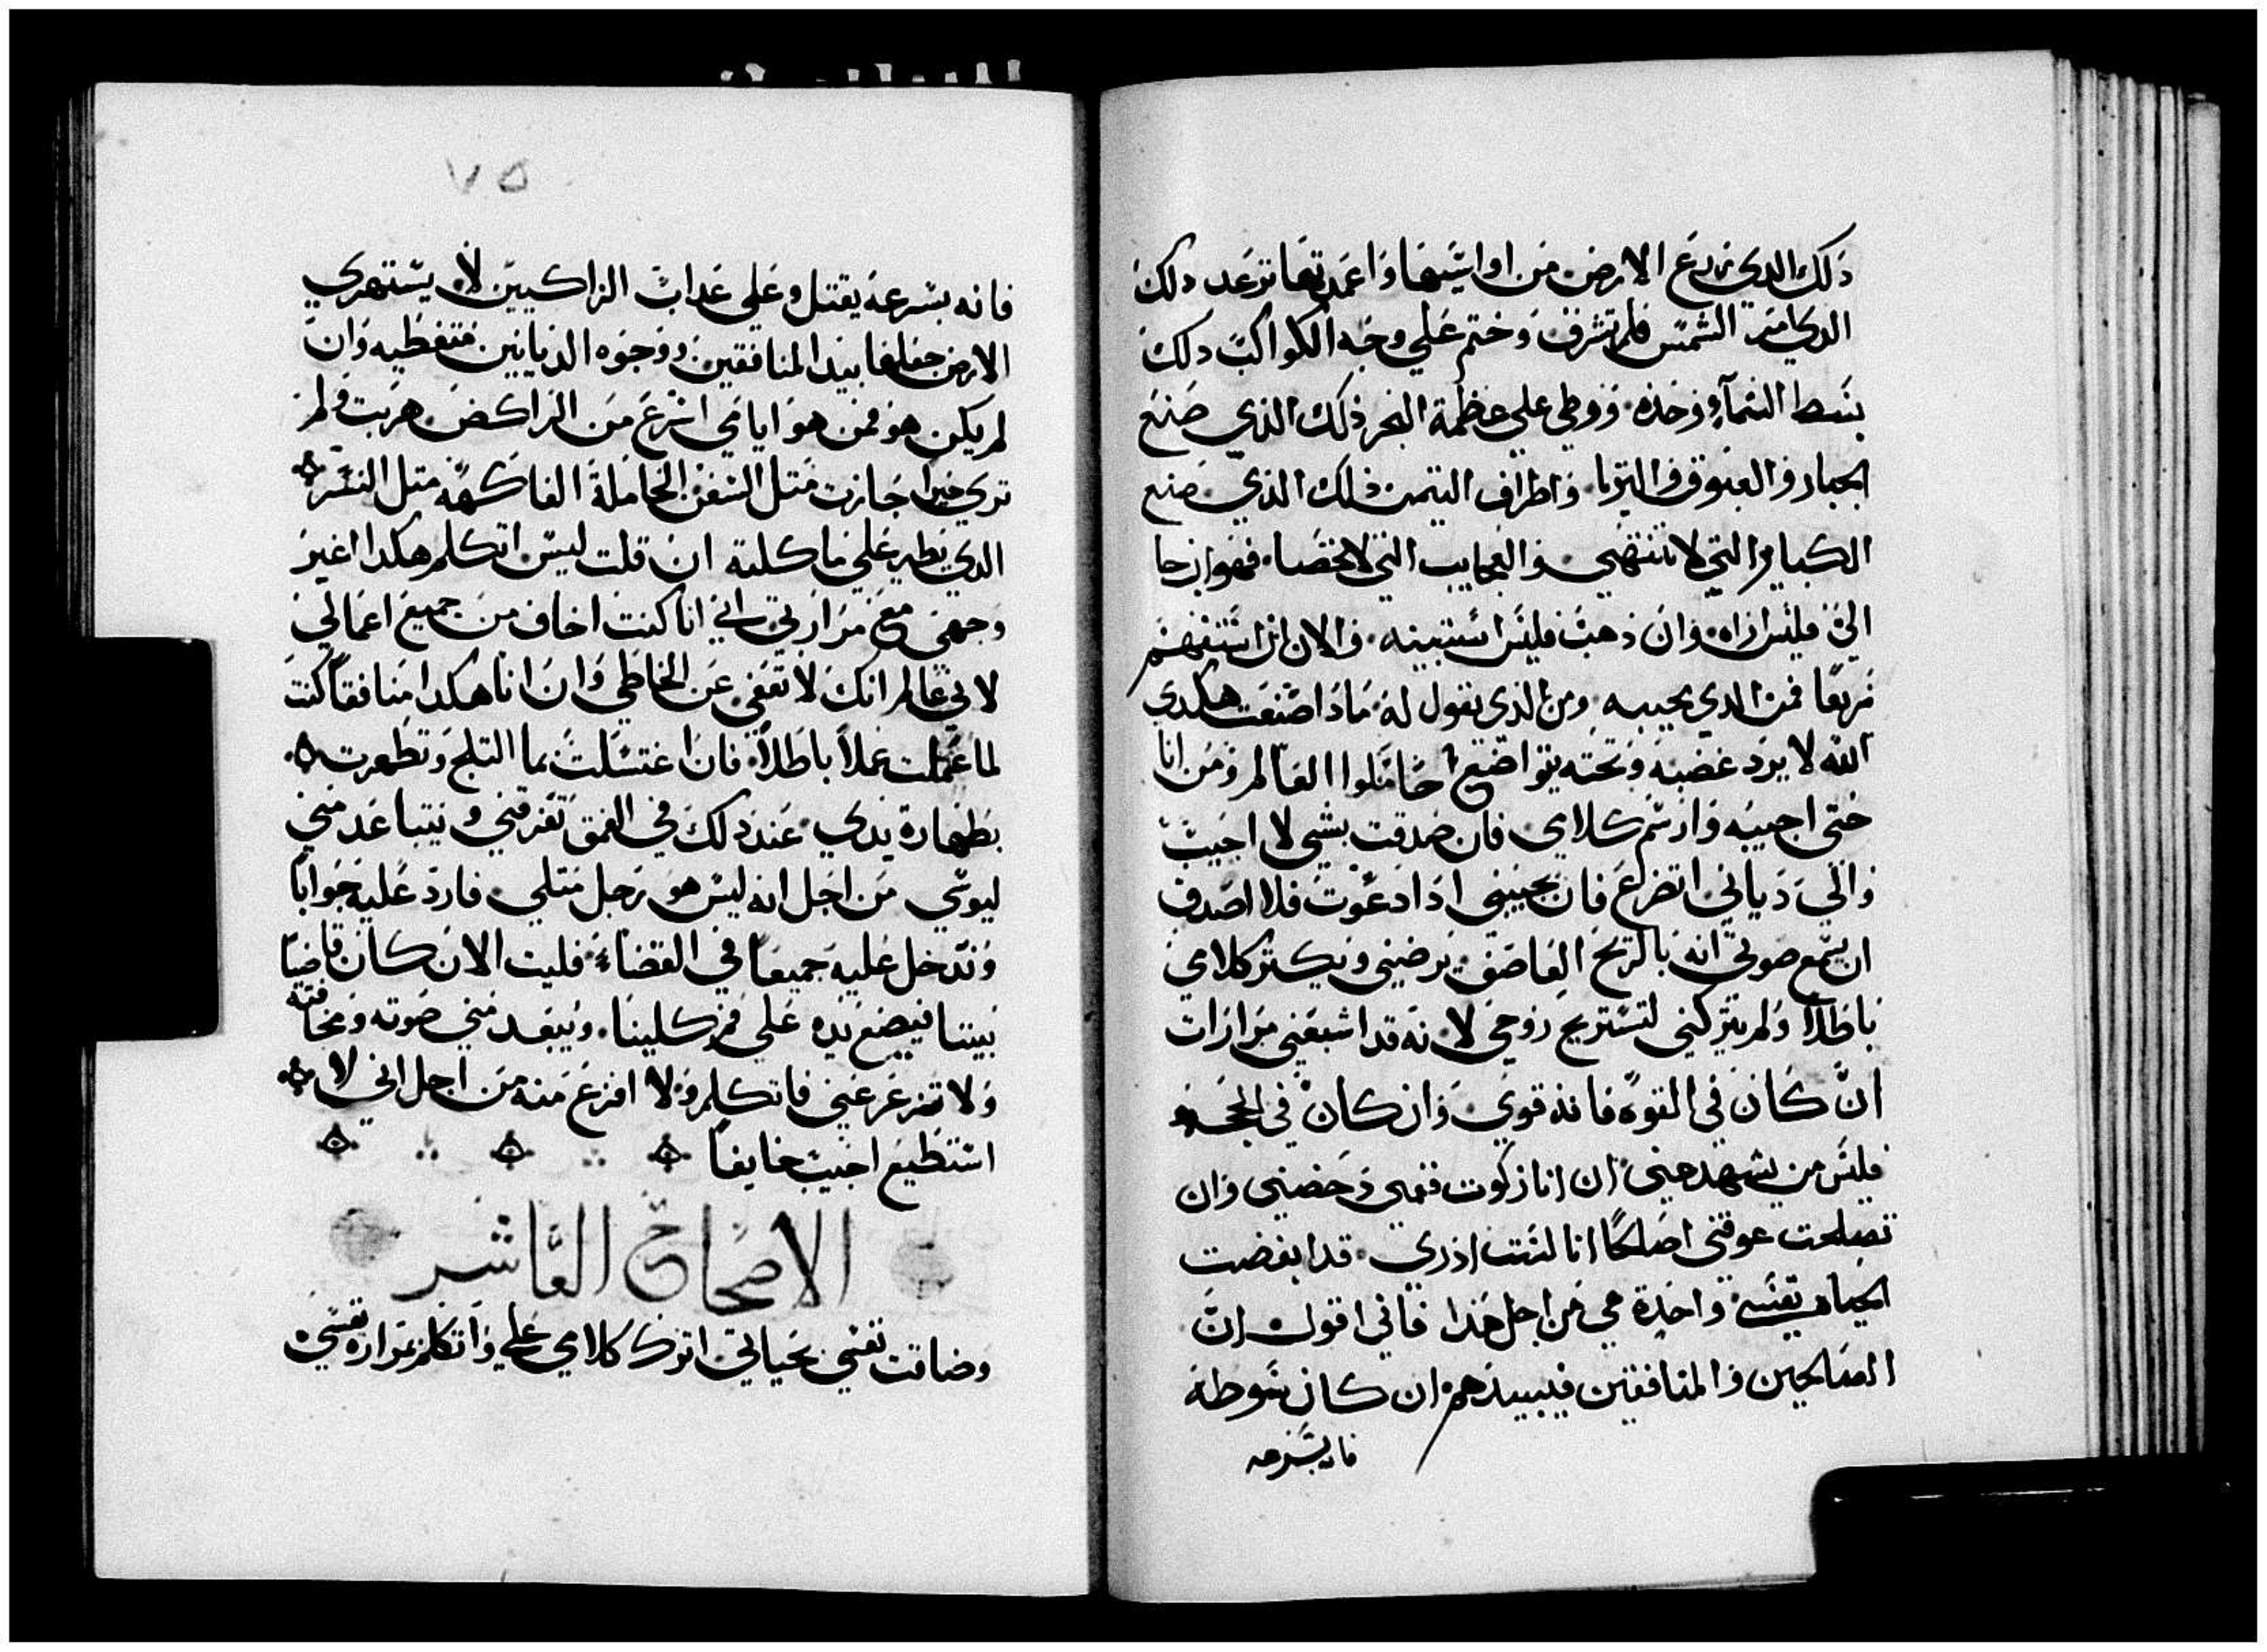 ذلك الدي يزعزع الارض من اواسيسها واعمدتها ترعد دلك
الدي امر الشمس فلم تشرق وختم علي وجه الكواكب دلك
بسط السمآء وحده ووطي علي عظمة البحر ذلك الذي صنع
الجبار والعيوق والتريا واطراف التيمن ذلك الذي صنع
الكباير التي لا تنتهي والعجايب التي لا تحصا فهو ان جا
الي فليس اراه وان ذهب فليس استبينه والان ان استفهم
سريعا فمن الدي يجيبه ومن الذي يقول له مادا صنعت هكدي
الله لا يرد غضبه وتحته يتواضع حاملوا العالم ومن انا
حتي اجيبه وارسم كلامي فان صدقت بشي لا اجيب
والي دياني اتضرع فان يجيبني ادا دعوت فلا اصدق
ان يسمع صوتي انه بالريح العاصف يرضني ويكتر كلامي
باطلا ولم يتركني لتستريح روحي لانه قد اشبعني مرارات
ان كان في القوه فانه قوي وان كان في الحجه
فليس من يشهد عني ان انا زكوت فتمي دحضني وان
تصلحت عوقني اصلحا انا لست ادري قد ابغضت
الحياه نفسي واحدة هي من اجل هذا فاني اقول ان
الصالحين والمنافقين فيبيدهم ان كان بسوطه
فانه بسرعه
٧٥
فانه بسرعه يقتل وعلي عداب الزاكيين لا يستهزي
الارض جعلها بيد المنافقين ووجوه الديانين متغطيه وان
لم يكن هو فمن هو ايامي اسرع من الراكض هربت ولم
تري خيرا جازت متل السفن الحاملة الفاكهه متل النسر
الدي يطير علي ماكلته ان قلت ليس اتكلم هكدا اغير
وجهي مع مرارتي انا كنت اخاف من جميع اعمالي
لاني عالم انك لا تعفي عن الخاطي وان انا هكدا منافقا كنت
لما عملت عملا باطلا فان اغتسلت بما التلج وتطهرت
بطهارة يدي عند دلك في العمق تغرقني ويتباعد مني
لبوسي من اجل انه ليس هو رجل متلي فارد عليه جوابا
وندخل عليه جميعا في القضاء فليت الان كان قاضيا
بيننا فيضع يده علي فم كلينا ويبعد مني صوته ومخافته
ولا تزعزعني فاتكلم ولا افزع منه من اجل اني لا
استطيع اجيب خايفا
الاصحاح العاشر
وضاقت نفسي بحياتي اترك كلامي علي واتكلم بمرارة نفسي